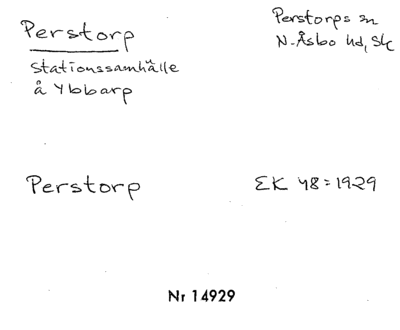 Perstorp
Perstorps sn
N. Åsbo hd, Sk
Stationssamhälle
å Ybbarp
Perstorp
EK 48 = 1929
Nr 14929